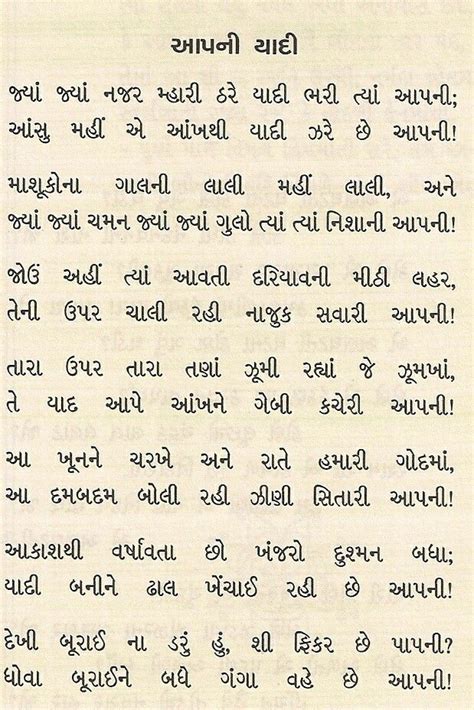 આપની યાદી
જ્યાં જ્યાં નજર મ્હારી ઠરે યાદી ભરી ત્યાં આપની;
આંસુ મહીં એ આંખથી યાદી ઝરે છે આપની!
માશૂકોના ગાલની લાલી મહીં લાલી, અને
જ્યાં જ્યાં ચમન જ્યાં જ્યાં ગુલો ત્યાં ત્યાં નિશાની આપની!
જોઉં અહીં ત્યાં આવતી દરિયાવની મીઠી લહર,
તેની ઉપર ચાલી રહી નાજુક સવારી આપની!
તારા ઉપર તારા તણાં ઝૂમી રહ્યાં જે ઝૂમખાં,
તે યાદ આપે આંખને ગેબી કચેરી આપની!
આ ખૂનને ચરખે અને રાતે હમારી ગોદમાં,
આ દમબદમ બોલી રહી ઝીણી સિતારી આપની!
આકાશથી વર્ષાવતા છો ખંજરો દુશ્મન બધા;
યાદી બનીને ઢાલ ખેંચાઈ રહી છે આપની!
દેખી બૂરાઈ ના ડરું હું, શી ફિકર છે પાપની?
ધોવા બૂરાઈને બધે ગંગા વહે છે આપની!